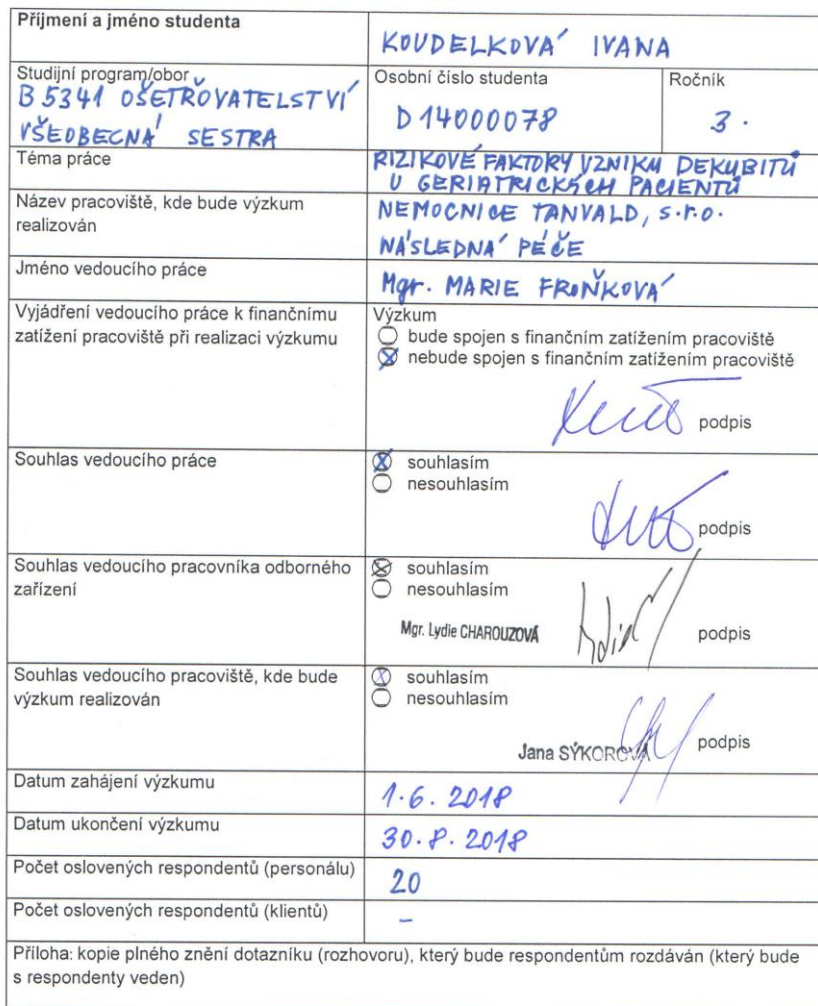 Příjmení a jméno studenta
KOUDELKOVÁ IVANA
Studijní program/obor
B 5341 OŠETŘOVATELSTVÍ
VŠEOBECNÁ SESTRA
Osobní číslo studenta
D 14000078
Ročník
3.
Téma práce
RIZIKOVÉ FAKTORY VZNIKU DEKUBITŮ
U GERIATRICKÝCH PACIENTŮ
Název pracoviště, kde bude výzkum
realizován
NEMOCNICE TANVALD, s.r.o.
NÁSLEDNÁ PÉČE
Jméno vedoucího práce
Mgr. MARIE FROŇKOVÁ
Vyjádření vedoucího práce k finančnímu
zatížení pracoviště při realizaci výzkumu
Výzkum
bude spojen s finančním zatížením pracoviště
nebude spojen s finančním zatížením pracoviště
podpis
Souhlas vedoucího práce
souhlasím
nesouhlasím
podpis
Souhlas vedoucího pracovníka odborného
zařízení
souhlasím
nesouhlasím
Mgr. Lydie CHAROUZOVÁ
podpis
Souhlas vedoucího pracoviště, kde bude
výzkum realizován
souhlasím
nesouhlasím
Jana SÝKOROVÁ
podpis
Datum zahájení výzkumu
1.6. 2018
Datum ukončení výzkumu
30.8.2018
Počet oslovených respondentů (personálu)
20
Počet oslovených respondentů (klientů)
–
Příloha: kopie plného znění dotazníku (rozhovoru), který bude respondentům rozdáván (který bude
s respondenty veden)